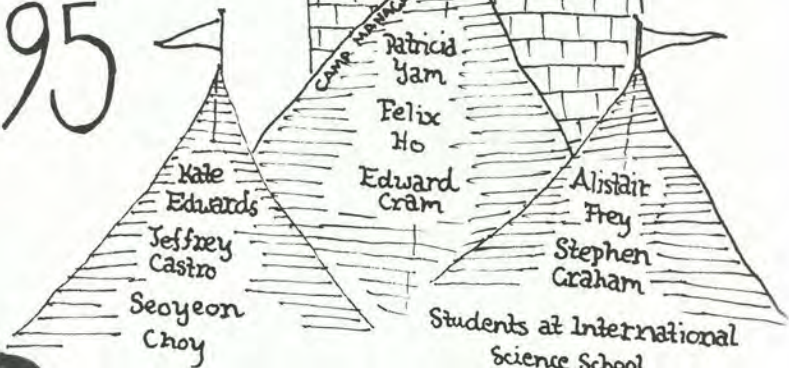 95
CAMP MANAG
Patricia
Yam
Felix
Ho
Edward
Cram
Kate
Edwards
Jeffrey
Castro
Seoyeon
Choy
Alistair
Frey
Stephen
Graham
Students at International
Science School